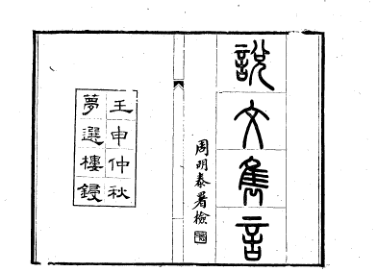 說文雋言
周明泰署檢
壬申仲秋
夢選樓鋟